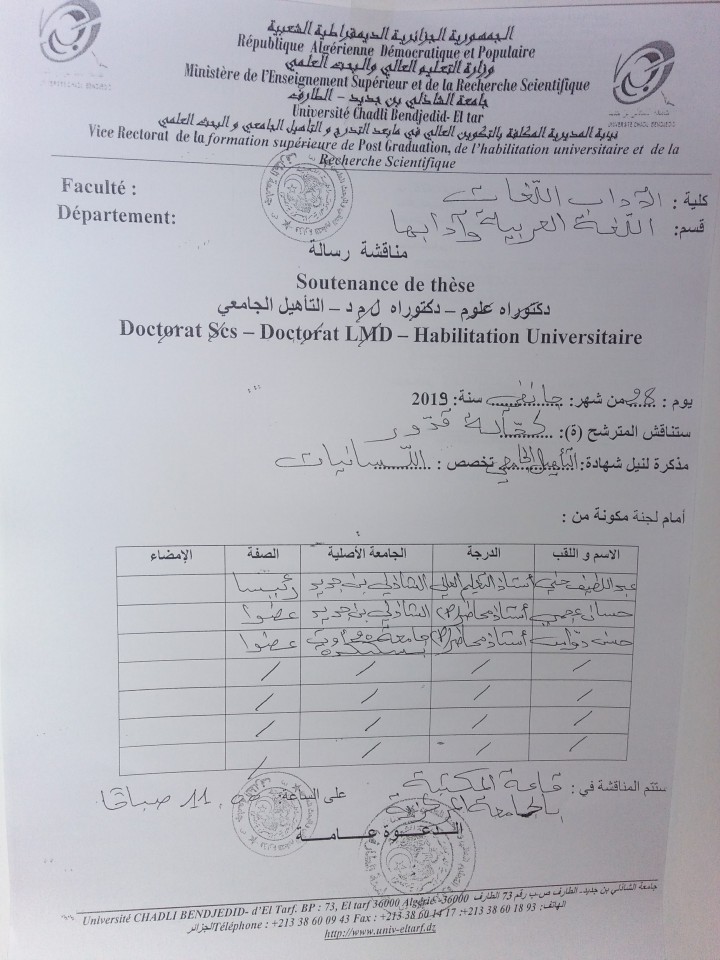 الجمهورية الجزائرية الديمقراطية الشعبية
République Algérienne Démocratique et Populaire
وزارة التعليم العالي والبحث العلمي
Ministère de l'Enseignement Supérieur et de la Recherche Scientifique
جامعة الشاذلي بن جديد – الطارف
Université Chadli Bendjedid- El tar
نيابة المديرية المكلفة بالتكوين العالي في مابعد التدرج و التأهيل الجامعي و البحث العلمي
Vice Rectorat de la formation supérieure de Post Graduation, de l'habilitation universitaire et de la
Recherche Scientifique
Faculté : كلية : الآداب اللغات
Département: قسم: اللغة العربية وآدابها
مناقشة رسالة
Soutenance de thèse
دكتوراه علوم – دكتوراه ل م د – التأهيل الجامعي
Doctorat Scs – Doctorat LMD – Habilitation Universitaire
يوم : 28 من شهر: جانفي سنة: 2019
ستناقش المترشح (ة): قدور
مذكرة لنيل شهادة: التأهيل الجامعي تخصص : اللسانيات
أمام لجنة مكونة من :
الاسم و اللقب الدرجة الجامعة الأصلية الصفة الإمضاء
عبد اللطيف حني أستاذ التعليم العالي الشاذلي بن جديد رئيسا
أستاذ محاضر الشاذلي بن جديد عضوا
أستاذ محاضر جامعة عضوا
سكيكدة
/ / / /
/ / / /
/ / / /
/ / / /
ستتم المناقشة في : قاعة المكتبة على الساعة: 11 صباحا
بالجامعة المركزية
الدعوة عامة
جامعة الشاذلي بن جديد- الطارف ص.ب رقم 73 الطارف 36000
Université CHADLI BENDJEDID- d'El Tarf. BP : 73, El tarf 36000 Algérie
الهاتف: Téléphone : +213 38 60 09 43 Fax : +213 38 60 14 17 :+213 38 60 18 93 الجزائر
http://www.univ-eltarf.dz